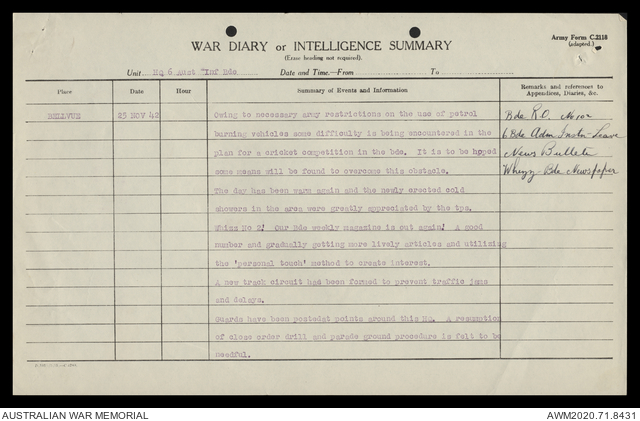 Army Form C.2118
(adapted.)
WAR DIARY or INTELLIGENCE SUMMARY
(Erase heading not required).
Unit HQ 6 Aust Inf Bde Date and Time.—From To
Place Date Hour Summary of Events and Information Remarks and references to Appendices, Diaries, &c.
BELLVUE 25 NOV 42 Owing to necessary army restrictions on the use of petrol
burning vehicles some difficulty is being encountered in the
plan for a cricket competition in the bde. It is to be hpped
some means will be found to overcome this obstacle.
The day has been warm again and the newly erected cold
showers in the area were greatly appreciated by the tps.
No 2! Our Bde weekly magazine is out again! A good
number and gradually getting more lively articles and utilising
the 'personal touch' method to create interest.
A new track circuit has been formed to prevent traffic jams
and delays.
Guards have been postedat points around this HQ. A resumption
of close order drill and parade ground procedure is felt to be
needful.
Bde R.O. No 102
6 Bde Adm Instn - Leave
News Bulletin
Bde Newspaper
AUSTRALIAN WAR MEMORIAL
AWM2020.71.8431